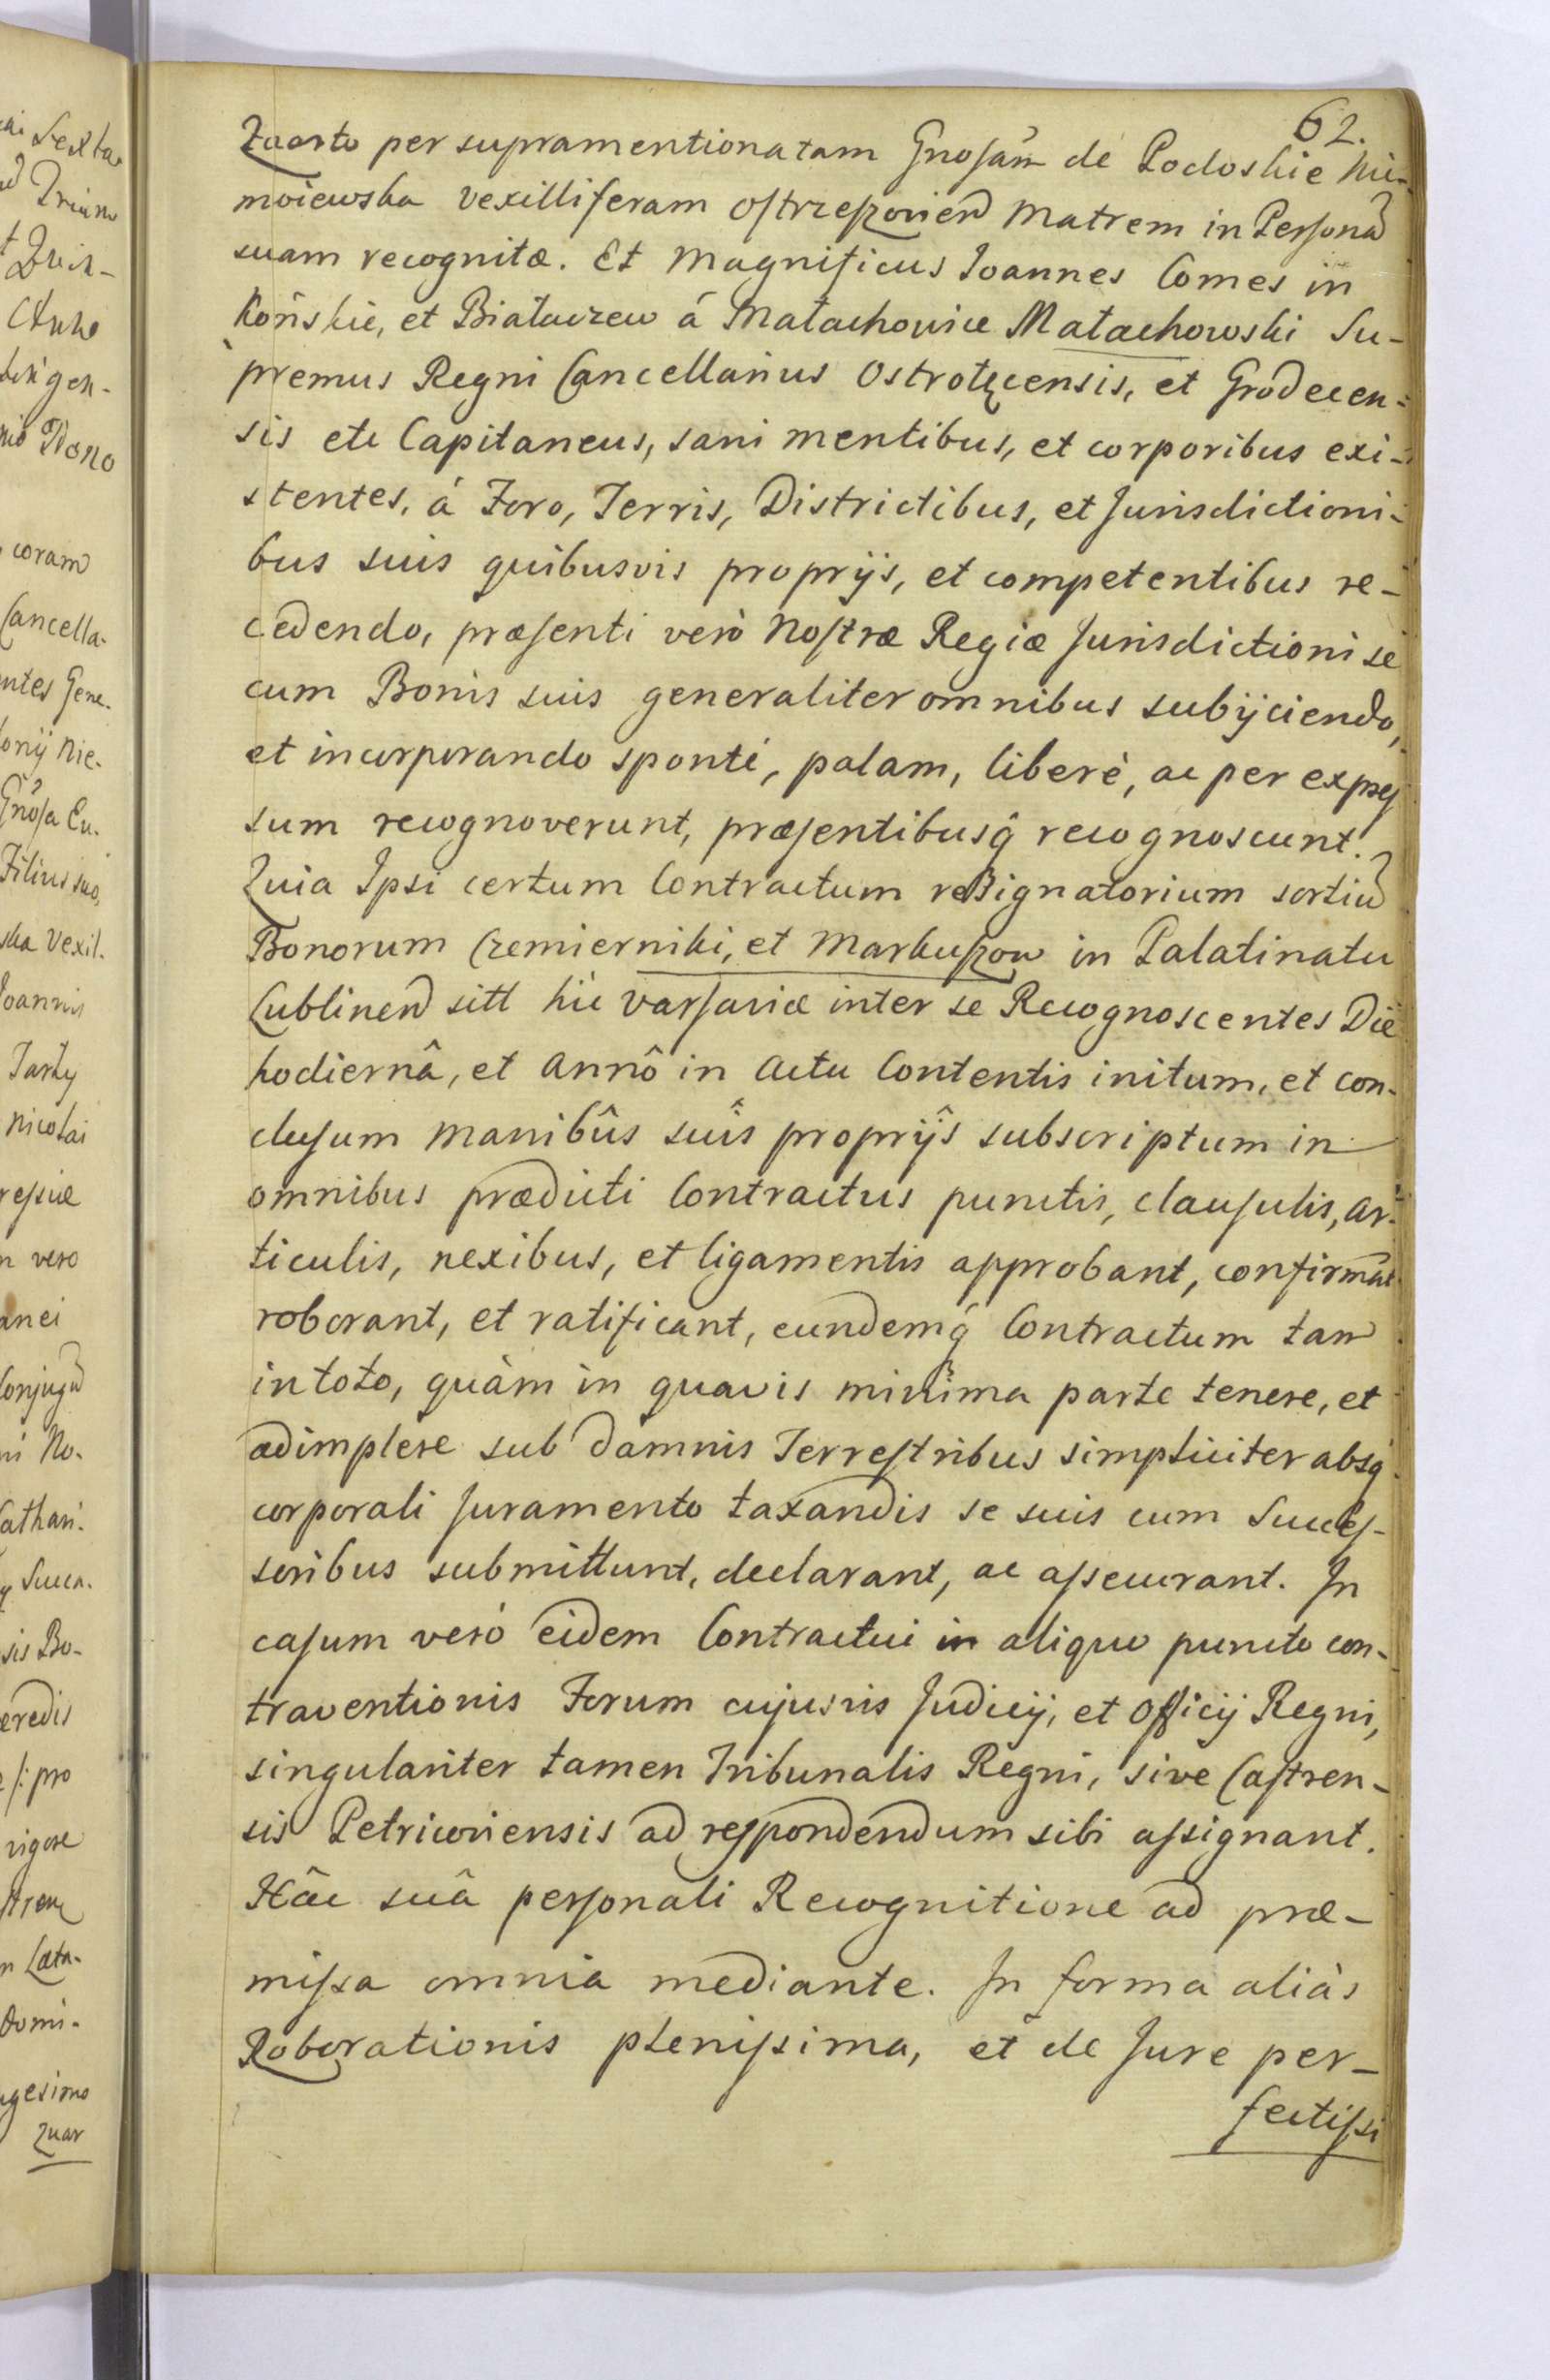 62.
Quarto per supramentionatam Gnosam de Podoskie Nie-
moiewska Vexilliferam Ostrzeszovien Matrem in Persona
suam recognitæ. Et Magnificus Ioannes Comes in
Końskie, et Białaczew á Małachowice Małachowski Su-
premus Regni Cancellarius Ostrołęcensis, et Grodecen-
sis etc Capitaneus, sani mentibus, et corporibus exi-
stentes, á Foro, Terris, Districtibus, et Jurisdictioni-
bus suis quibusvis proprijs, et competentibus re-
cedendo, præsenti verò Nostræ Regiæ Jurisdictioni se
cum Bonis suis generaliter omnibus subijciendo,
et incorporando spontè, palam, liberè, ac per expres
sum recognoverunt, præsentibusq̂ recognoscunt.
Quia Ipsi certum Contractum resignatorium sortiu
Bonorum Czemierniki, et Markuszow in Palatinatu
Lublinen sitt hic Varsaviæ inter se Recognoscentes Die
hodiernâ, et Annô in Actu Contentis initum, et con-
clusum manibûs suîs proprijs subscriptum in
omnibus prædicti Contractus punctis, clausulis, ar-
ticulis, nexibus, et ligamentis approbant, confirmāt
roborant, et ratificant, eundemq́ Contractum tam
in toto, quàm in quavis minima parte tenere, et
adimplere sub damnis Terrestribus simpliciter absq́
corporali Juramento taxandis se suis cum Succes-
soribus submittunt, declarant, ac assecurant. In
casum verò eidem Contractui in aliquo puncto con-
traventionis Forum cujusvis Judicij, et Officij Regni,
singulariter tamen Tribunalis Regni, sive Castren-
sis Petricoviensis ad respondendum sibi assignant.
Hâc suâ personali Recognitione ad præ-
missa omnia mediante. In forma aliàs
Roborationis plenissima, et de Jure per-
fectissi